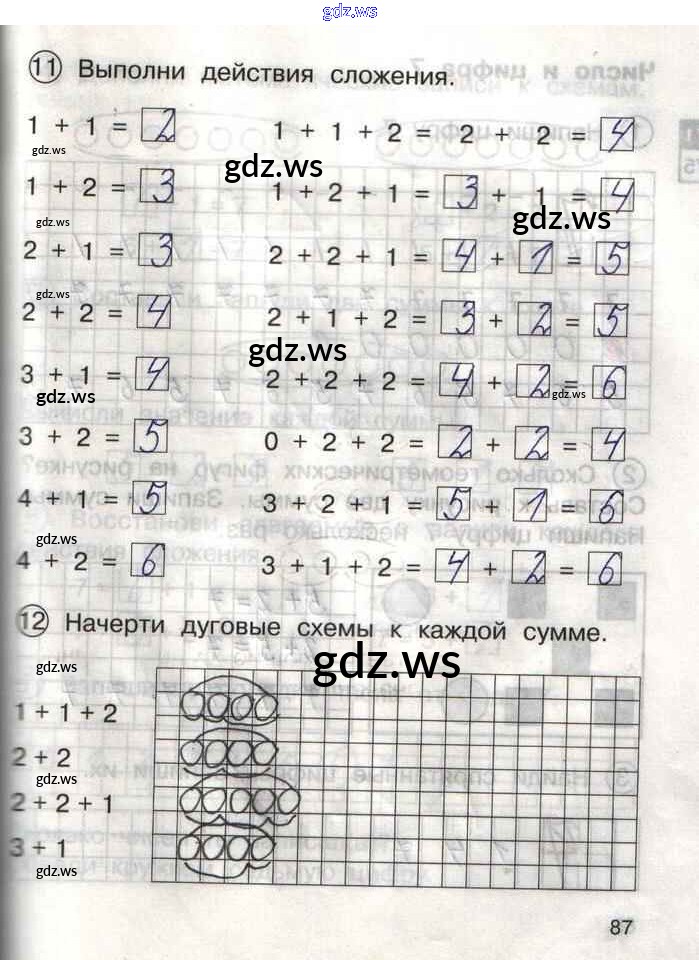 gdz.ws
11 Выполни действия сложения.
1 + 1 = 2 1 + 1 + 2 = 2 + 2 = 4
gdz.ws gdz.ws
1 + 2 = 3 1 + 2 + 1 = 3 + 1 = 4
gdz.ws gdz.ws
2 + 1 = 3 2 + 2 + 1 = 4 + 1 = 5
gdz.ws
2 + 2 = 4 2 + 1 + 2 = 3 + 2 = 5
gdz.ws
3 + 1 = 4 2 + 2 + 2 = 4 + 2 = 6
gdz.ws gdz.ws
3 + 2 = 5 0 + 2 + 2 = 2 + 2 = 4
4 + 1 = 5 3 + 2 + 1 = 5 + 1 = 6
gdz.ws
4 + 2 = 6 3 + 1 + 2 = 4 + 2 = 6
12 Начерти дуговые схемы к каждой сумме.
gdz.ws gdz.ws
1 + 1 + 2
2 + 2
gdz.ws
2 + 2 + 1
gdz.ws
3 + 1
gdz.ws
87